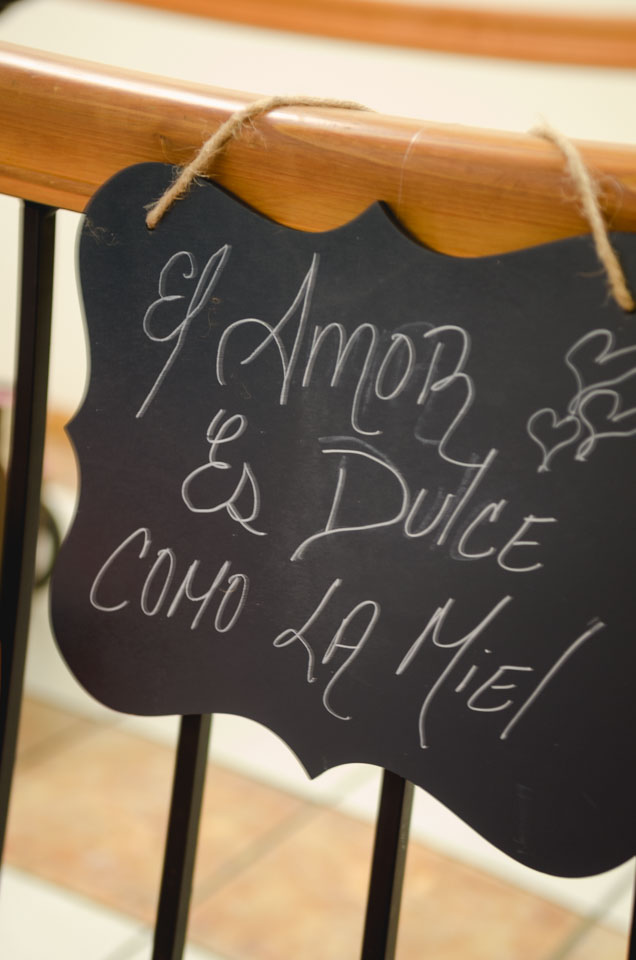 El AMOR
Es DulCE
COMO LA MiEl